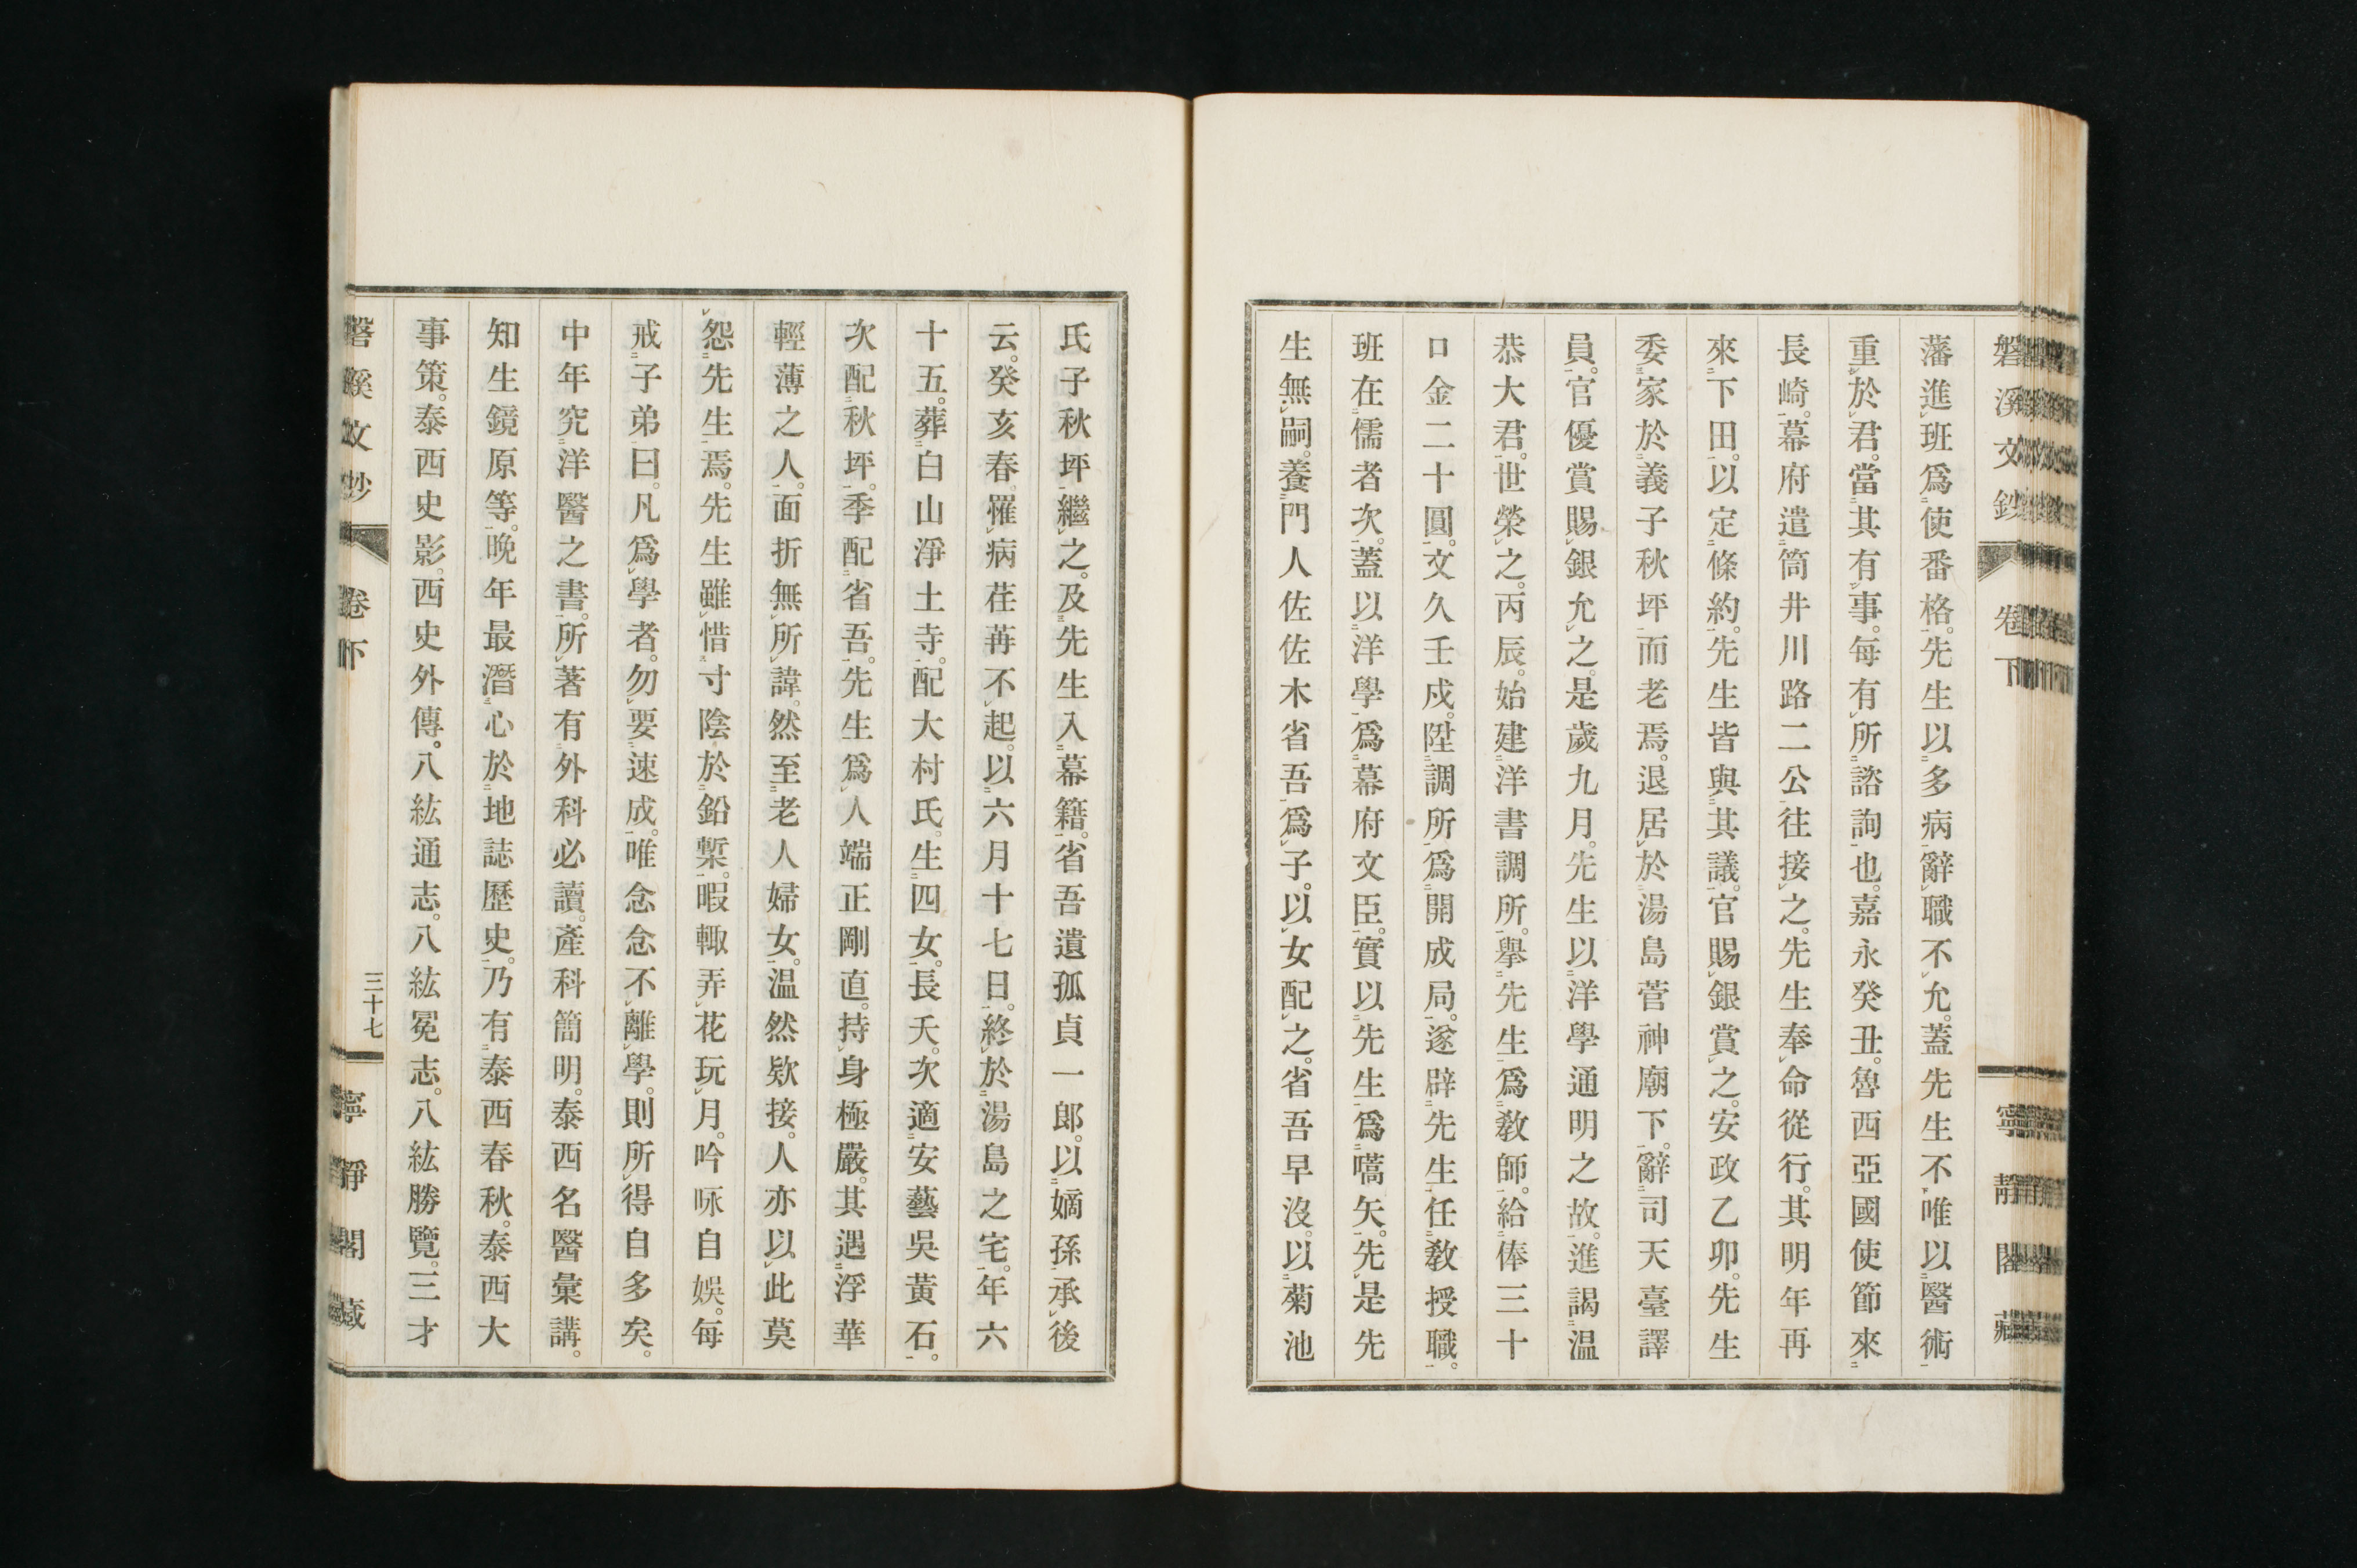 磐溪文鈔 卷下 寧靜閣藏
藩進班爲使番格。先生以多病辭職不允。蓋先生不唯以醫術
重於君。當其有事。每有所諮詢也。嘉永癸丑。魯西亞國使節來
長崎。幕府遣筒井川路二公往接之。先生奉命從行。其明年再
來下田。以定條約。先生皆與其議。官賜銀賞之。安政乙卯。先生
委家於義子秋坪而老焉。退居於湯島菅神廟下。辭司天臺譯
員。官優賞賜銀允之。是歲九月。先生以洋學通明之故。進謁温
恭大君。世榮之。丙辰。始建洋書調所。擧先生爲敎師。給俸三十
口金二十圓。文久壬戌。陞調所爲開成局。遂辟先生任敎授職。
班在儒者次。蓋以洋學爲幕府文臣。實以先生爲嚆矢。先是先
生無嗣。養門人佐佐木省吾爲子。以女配之。省吾早沒。以菊池
氏子秋坪繼之。及先生入幕籍。省吾遺孤貞一郎。以嫡孫承後
云。癸亥春。罹病荏苒不起。以六月十七日。終於湯島之宅。年六
十五。葬白山淨土寺。配大村氏。生四女。長夭。次適安藝吳黃石。
次配秋坪。季配省吾。先生爲人端正剛直。持身極嚴。其遇浮華
輕薄之人。面折無所諱。然至老人婦女。温然欵接。人亦以此莫
怨先生焉。先生雖惜寸陰於鉛槧。暇輙弄花玩月。吟咏自娛。每
戒子弟曰。凡爲學者。勿要速成。唯念念不離學。則所得自多矣。
中年究洋醫之書。所著有外科必讀。產科簡明。泰西名醫彙講。
知生鏡原等。晩年最潛心於地誌歷史。乃有泰西春秋。泰西大
事策。泰西史影。西史外傳。八紘通志。八紘冕志。八紘勝覽。三才
磐溪文鈔 卷下 三十七 寧靜閣藏